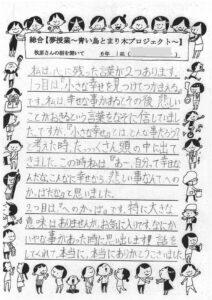 総合【夢授業～青い鳥とまり木プロジェクト～】
牧原さんの話を聞いて 6年 組（ ）
私は、心に残った言葉が2つあります。
1つ目は「小さな幸せを見つけてつかまえる」
です。私は幸せな事があるとその後、悲しい
ことがあるという言葉をなぞに信じていまし
た。ですが、“小さな幸せ”とは、どんな事だろう?
と考えた時、たっくさん頭の中に出て
きました。この時私は「あー、自分って幸せな
んだな。こんなに幸せなら、悲しい事なんてへの
かっぱだな。」と思いました。
2つ目は「へのかっぱ」です。特に大きな
意味はありませんが、お気に入りです。なにか
いやな事があった時に思い出します。話を
してくれて、本当に、本当にありがとうございました。